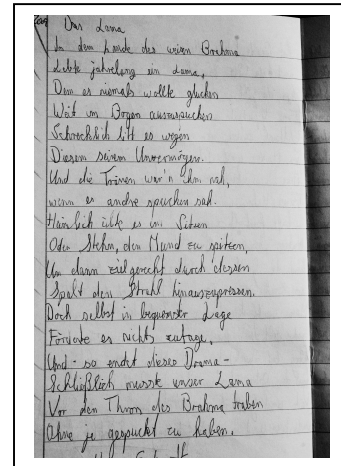 Das Lama
In dem Lande des weisen Brahma
Lebte jahrelang ein Lama,
Dem es niemals wollte glucken
Weit im Bogen auszuspucken
Schrecklich litt es wegen
Diesem seinem Unvermögen.
Und die Tränen war'n ihm nah,
wenn es andre spucken sah.
Heimlich übte es im Sitzen
Oder Stehn, den Mund zu spitzen,
Um dann zielgerecht durch dessen
Spalt den Strahl hinauszupressen.
Doch selbst in bequemster Lage
Förderte es nichts zutage,
Und - so endet dieses Drama -
Schließlich musste unser Lama
Vor den Thron des Brahma traben
Ohne je gespuckt zu haben.